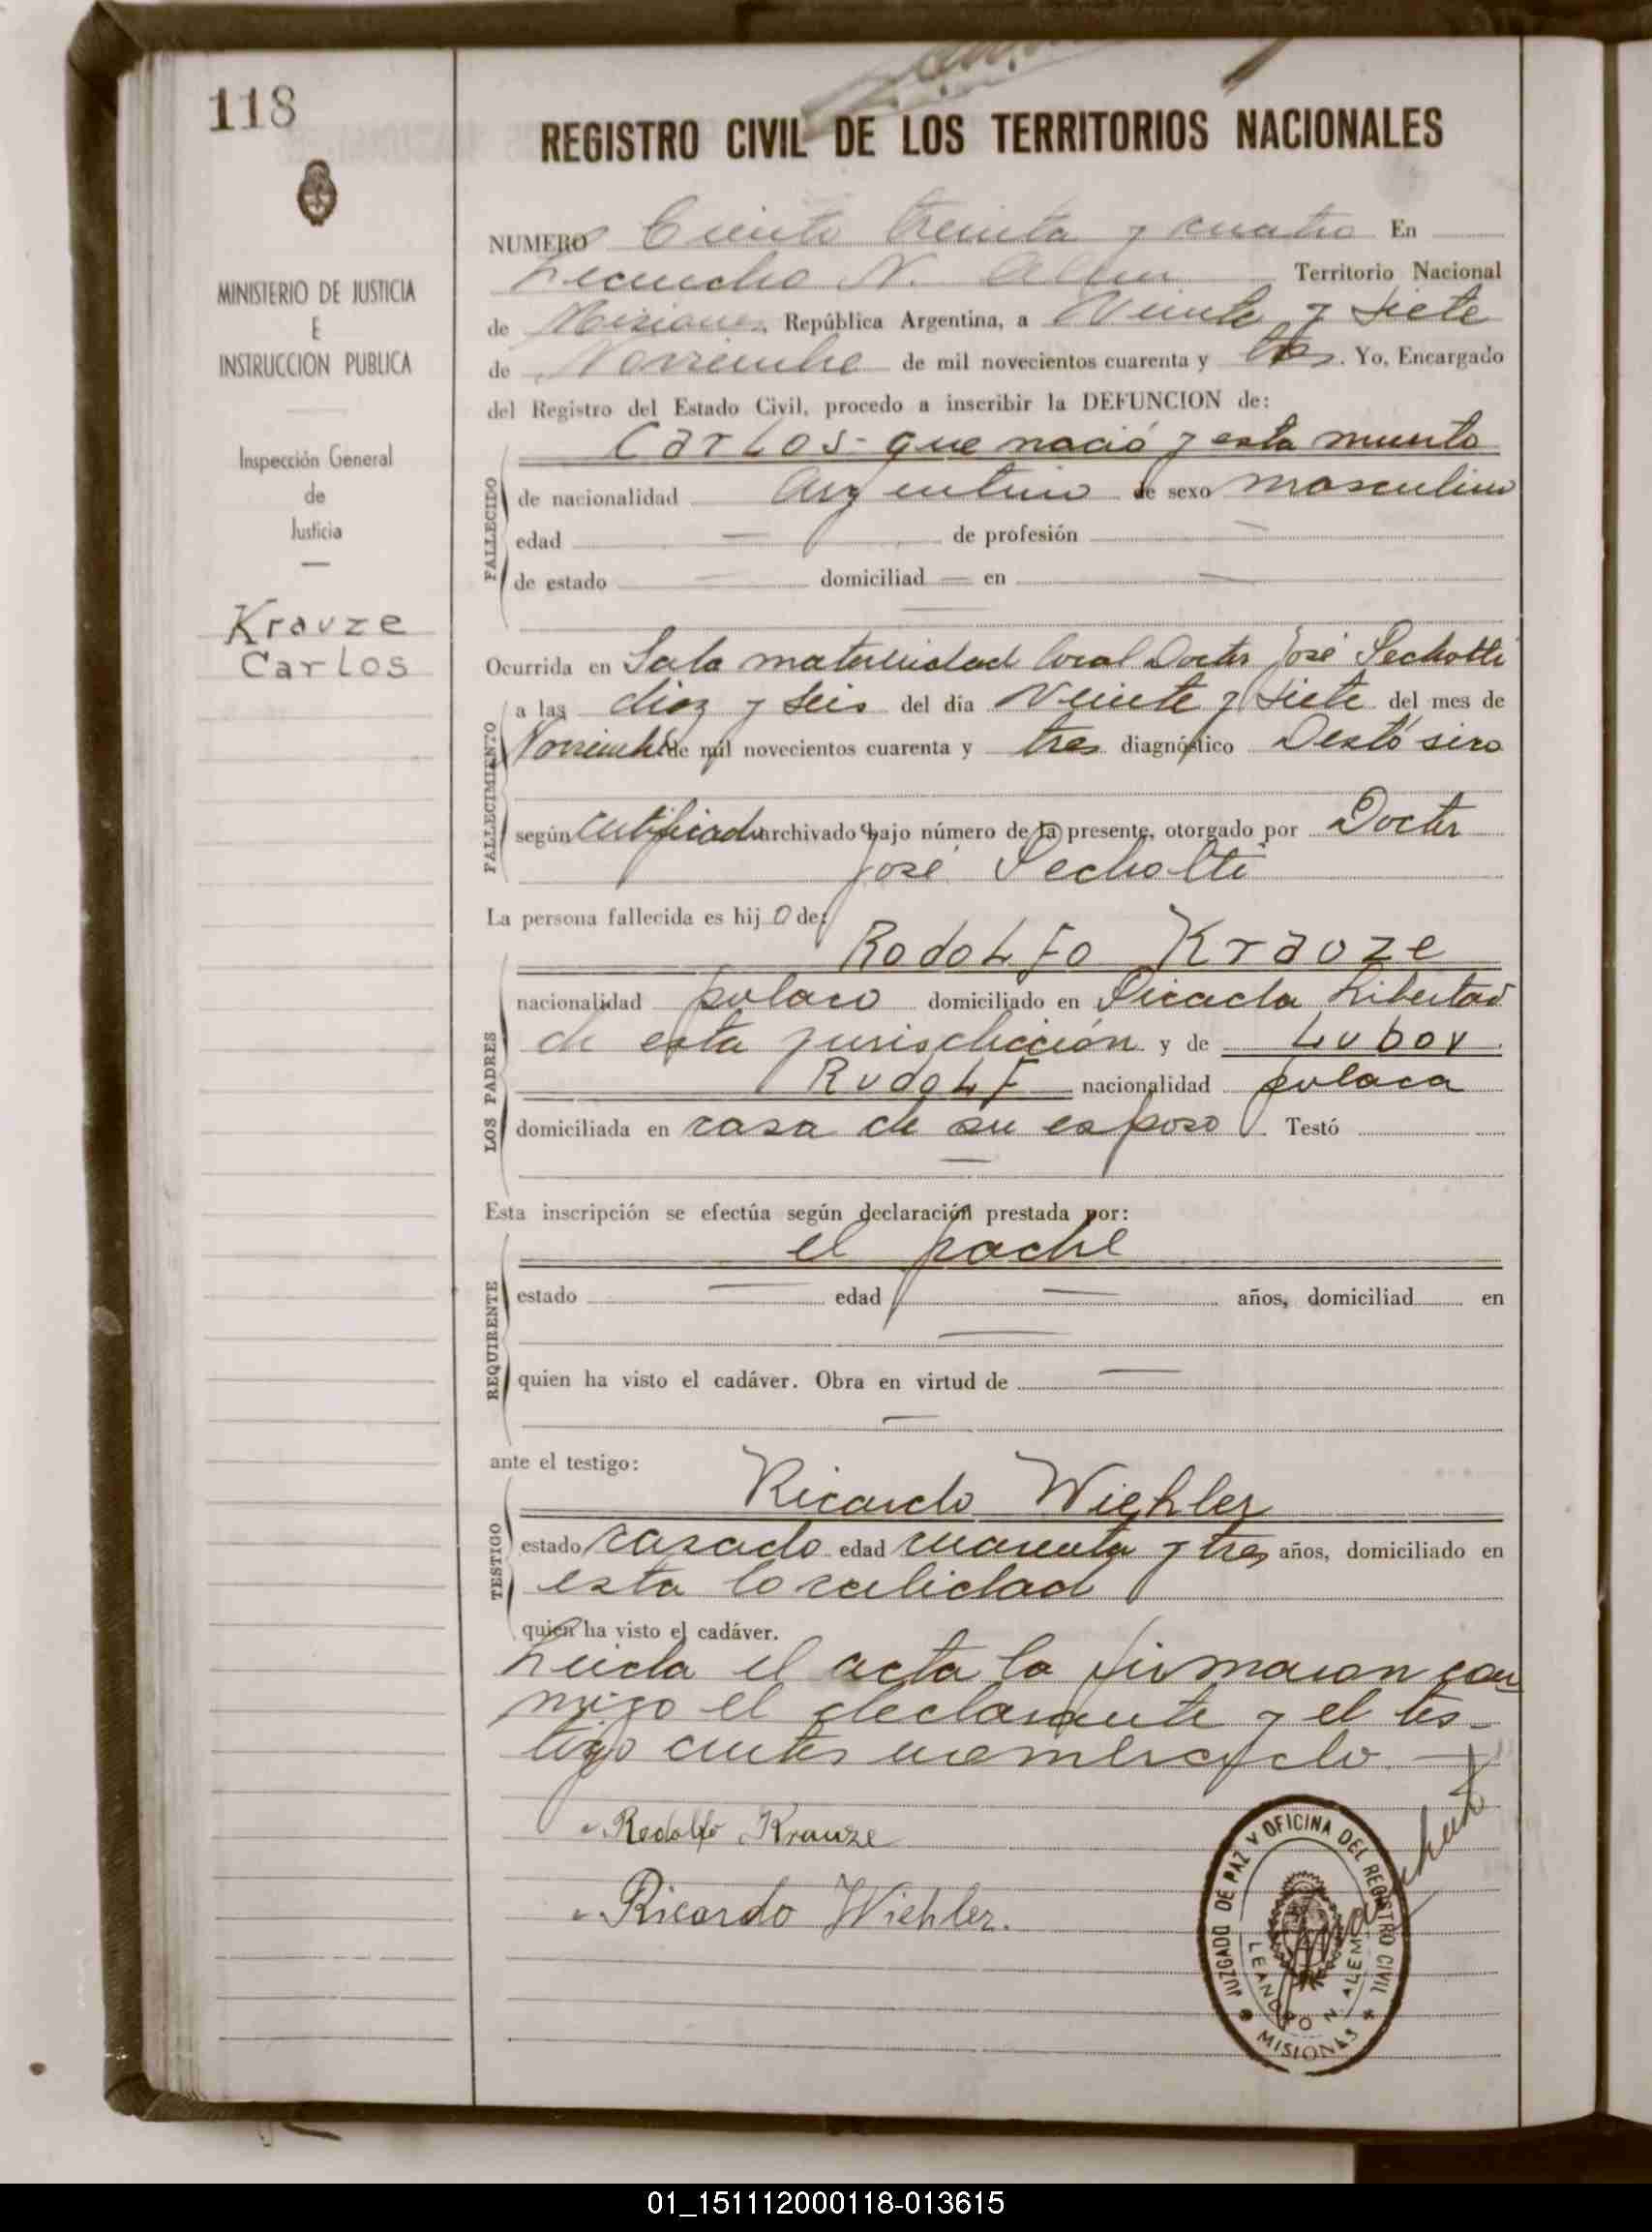 118
REGISTRO CIVIL DE LOS TERRITORIOS NACIONALES
MINISTERIO DE JUSTICIA
E
INSTRUCCION PUBLICA
Inspección General
de
Justicia
Krauze
Carlos
NUMERO Ciento treinta y cuatro En
Leandro N. Alem Territorio Nacional
de Misiones, República Argentina, a Veinte y siete
de Noviembre de mil novecientos cuarenta y tres. Yo, Encargado
del Registro del Estado Civil, procedo a inscribir la DEFUNCION de:
FALLECIDO
Carlos - que nació y esta muerto
de nacionalidad argentino de sexo masculino
edad — de profesión —
de estado — domiciliad — en —
Ocurrida en Sala maternidad local Doctor José
FALLECIMIENTO
a las diez y seis del día Veinte y siete del mes de
Noviembre de mil novecientos cuarenta y tres diagnóstico
según certificado archivado bajo número de la presente, otorgado por Doctor
José
La persona fallecida es hijo de:
LOS PADRES
Rodolfo Krauze
nacionalidad polaco domiciliado en Picada Libertad
de esta jurisdicción y de Lubov
Rudolf nacionalidad polaca
domiciliada en casa de su esposo Testó
—
Esta inscripción se efectúa según declaración prestada por:
REQUIRENTE
el padre
estado — edad — años, domiciliad en
—
quien ha visto el cadáver. Obra en virtud de —
—
ante el testigo:
TESTIGO
Ricardo Wiehler
estado casado edad cuarenta y tres años, domiciliado en
esta localidad
quien ha visto el cadáver.
Leida el acta la firmaron con
migo el declarante y el tes-
tigo antes nombrado. —
Rodolfo Krauze
Ricardo Wiehler.
JUZGADO DE PAZ Y OFICINA DEL REGISTRO CIVIL
LEANDRO N. ALEM
MISIONES
01_151112000118-013615